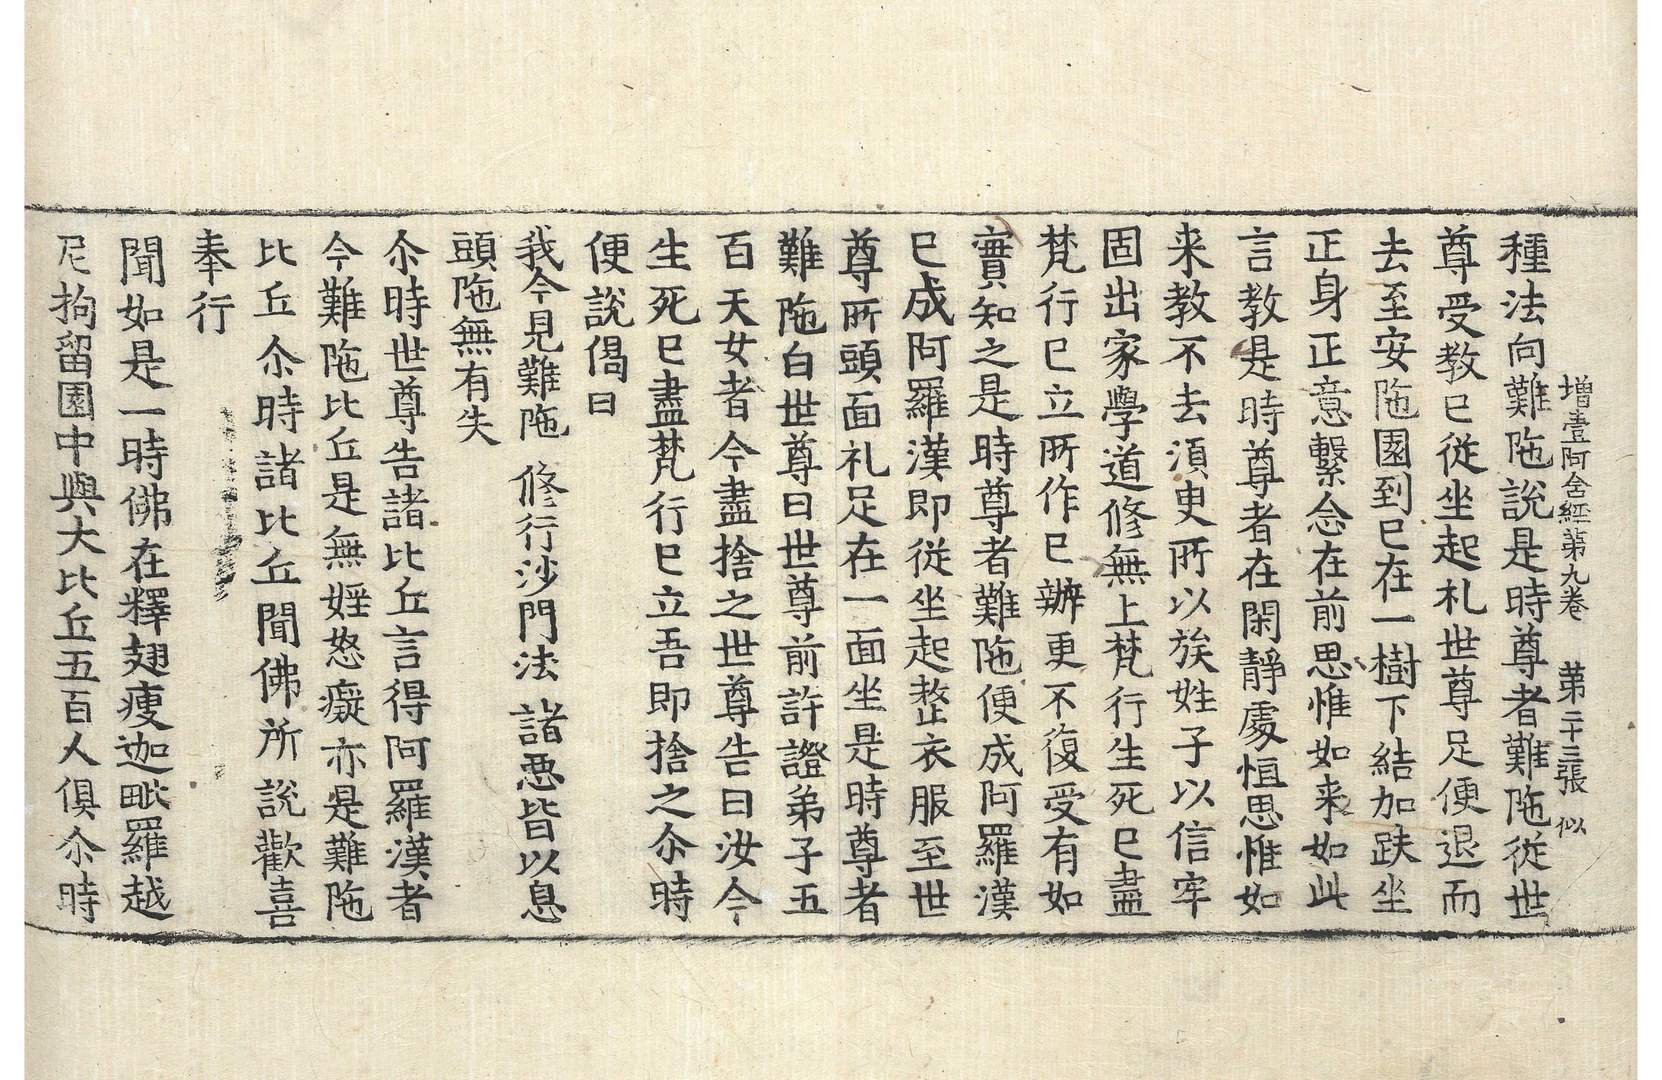 增壹阿含經第九卷　第二十三張　似
種法向難陁說是時尊者難陁從世
尊受教已從坐起礼世尊足便退而
去至安陁園到已在一樹下結加趺坐
正身正意繫念在前思惟如来如此
言教是時尊者在閑靜處恒思惟如
来教不去須臾所以族姓子以信牢
固出家學道修無上梵行生死已盡
梵行已立所作已辦更不復受有如
實知之是時尊者難陁便成阿羅漢
已成阿羅漢即從坐起整衣服至世
尊所頭面礼足在一面坐是時尊者
難陁白世尊曰世尊前許證弟子五
百天女者今盡捨之世尊告曰汝今
生死已盡梵行已立吾即捨之尒時
便說偈曰
我今見難陁　修行沙門法　諸惡皆以息
頭陁無有失
尒時世尊告諸比丘言得阿羅漢者
今難陁比丘是無婬怒癡亦是難陁
比丘尒時諸比丘聞佛所說歡喜
奉行
聞如是一時佛在釋翅瘦迦毗羅越
尼拘留園中與大比丘五百人俱尒時